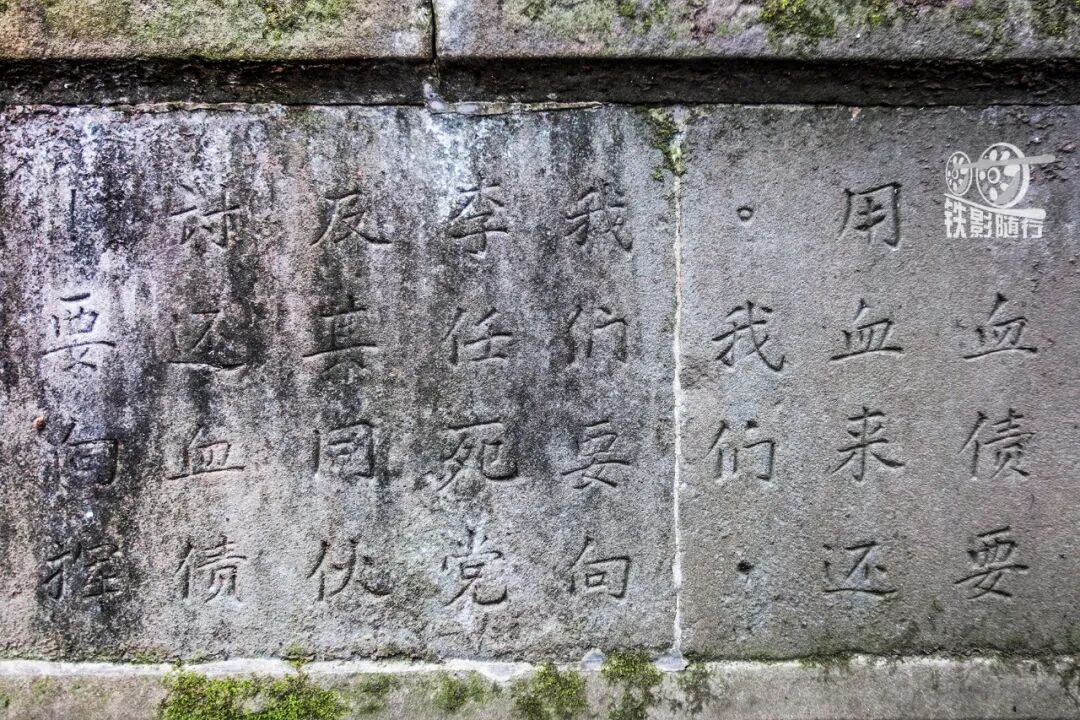 血债要
用血来还
。我们·
我们要向
李任死党
及其同伙
讨还血债
要向
铁影随行